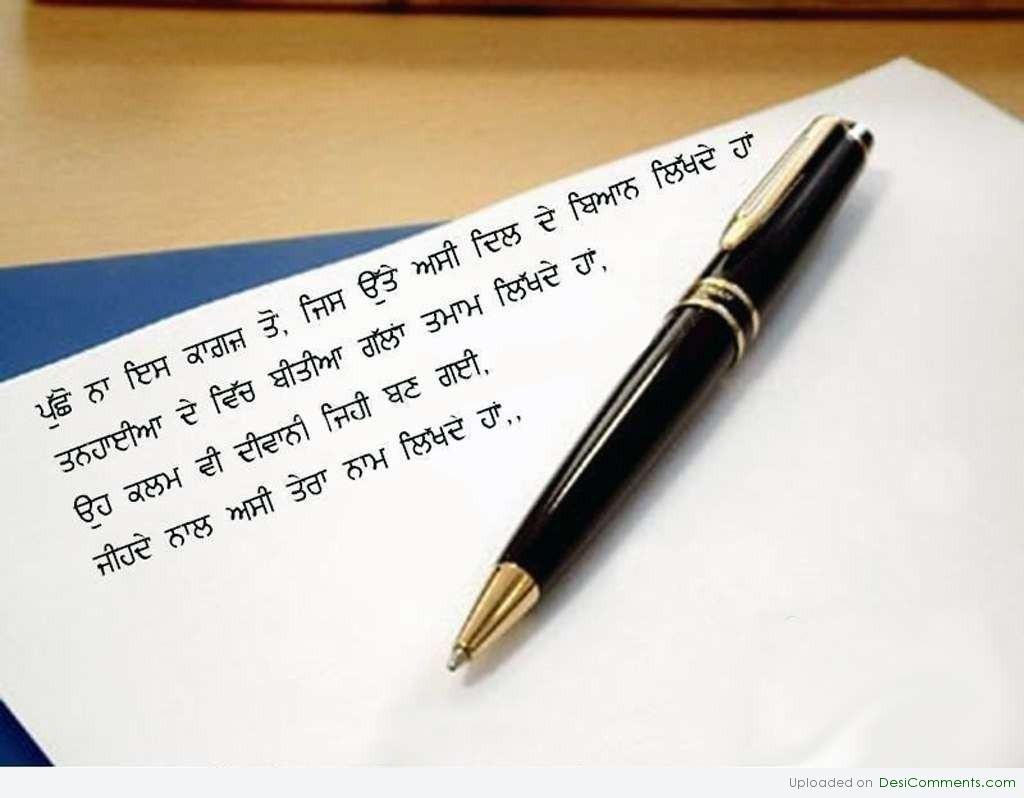 ਪੁੱਛੋ ਨਾ ਇਸ ਕਾਗ਼ਜ਼ ਤੋਂ, ਜਿਸ ਉੱਤੇ ਅਸੀ ਦਿਲ ਦੇ ਬਿਆਨ ਲਿੱਖਦੇ ਹਾਂ
ਤਨਹਾਈਆ ਦੇ ਵਿੱਚ ਬੀਤੀਆ ਗੱਲਾਂ ਤਮਾਮ ਲਿੱਖਦੇ ਹਾਂ,
ਉਹ ਕਲਮ ਵੀ ਦੀਵਾਨੀ ਜਿਹੀ ਬਣ ਗਈ,
ਜੀਹਦੇ ਨਾਲ ਅਸੀ ਤੇਰਾ ਨਾਮ ਲਿੱਖਦੇ ਹਾਂ,,
Uploaded on DesiComments.com